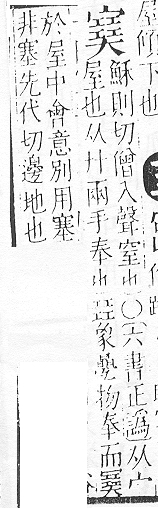 屋傾下也
𡫳穌則切僧入聲窒也〇六書正譌从宀
屋也从廾兩手奉也㠭象物奉而𡫳
於屋中會意別用塞
非塞先代切邊地也